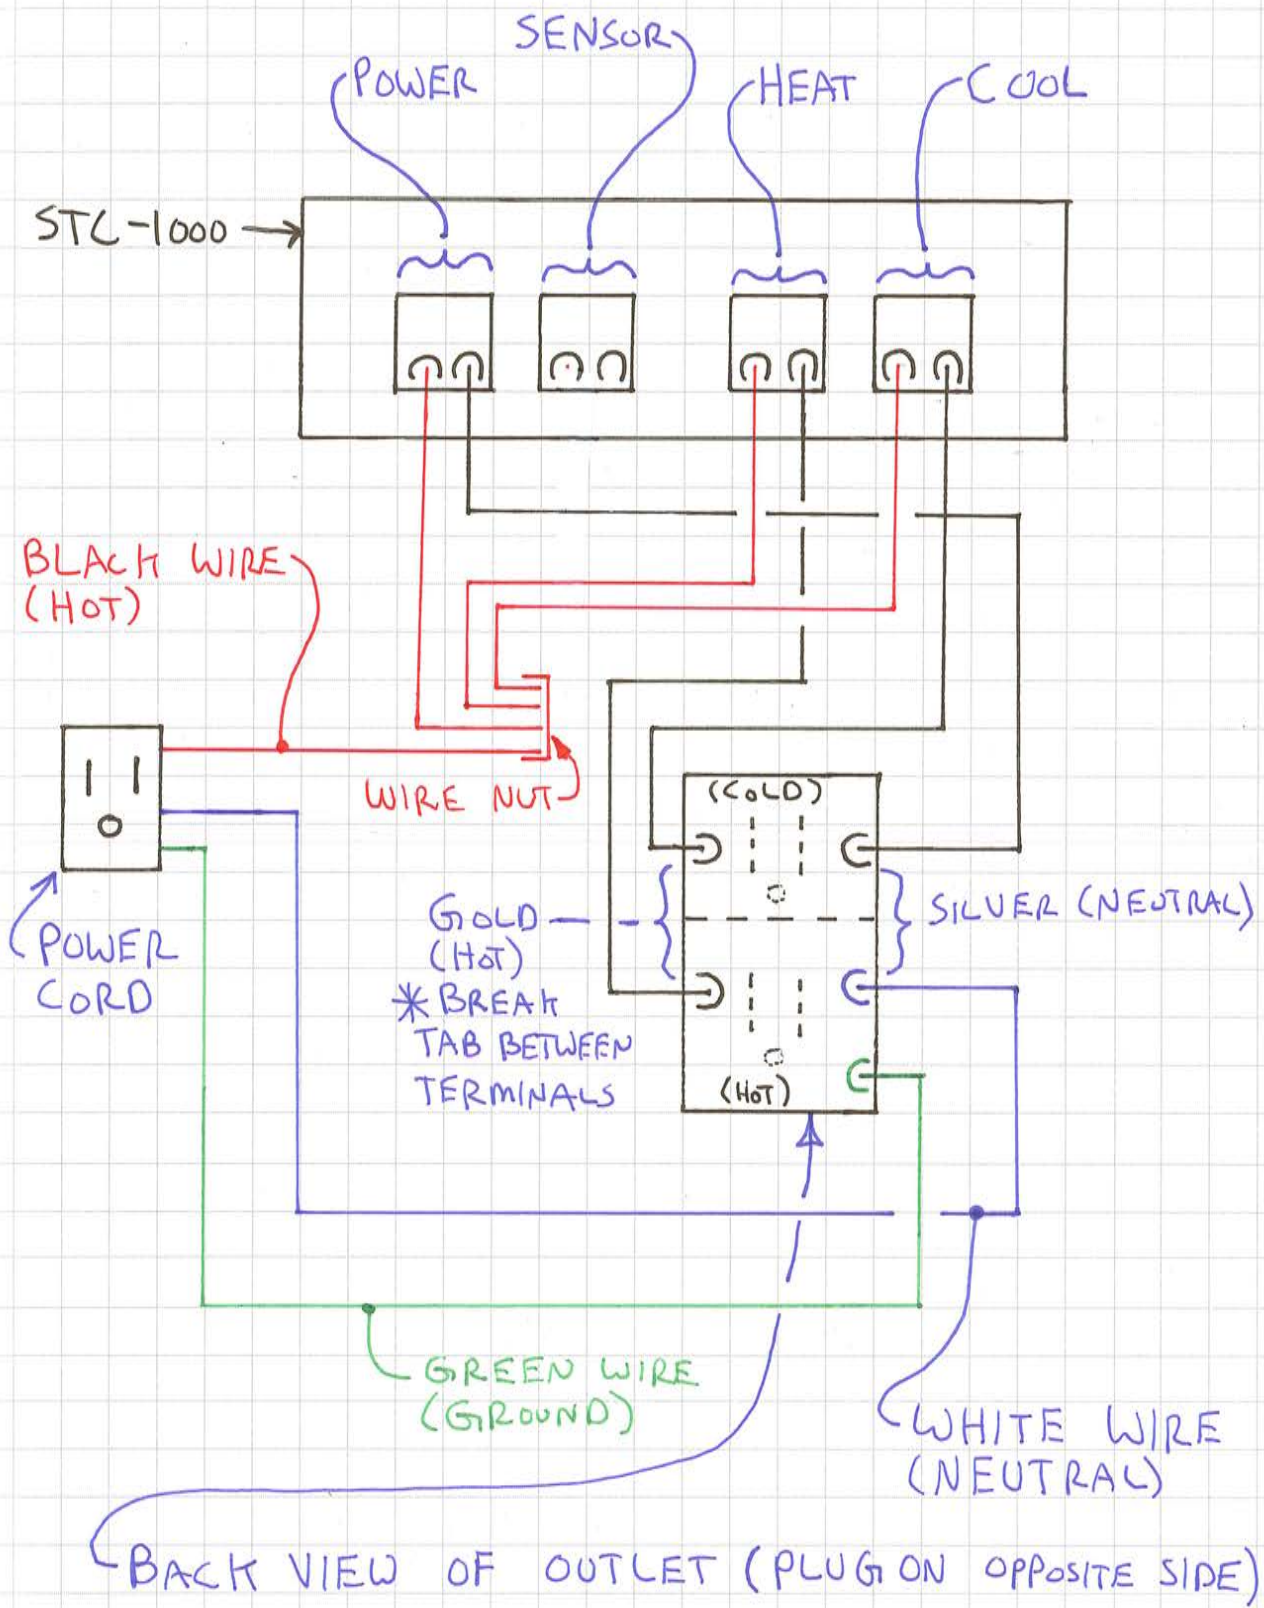 SENSOR
POWER
HEAT
COOL
STC-1000
BLACK WIRE
(HOT)
WIRE NUT
(COLD)
GOLD
(HOT)
* BREAK
TAB BETWEEN
TERMINALS
SILVER (NEUTRAL)
POWER
CORD
(HOT)
GREEN WIRE
(GROUND)
WHITE WIRE
(NEUTRAL)
BACK VIEW OF OUTLET (PLUG ON OPPOSITE SIDE)